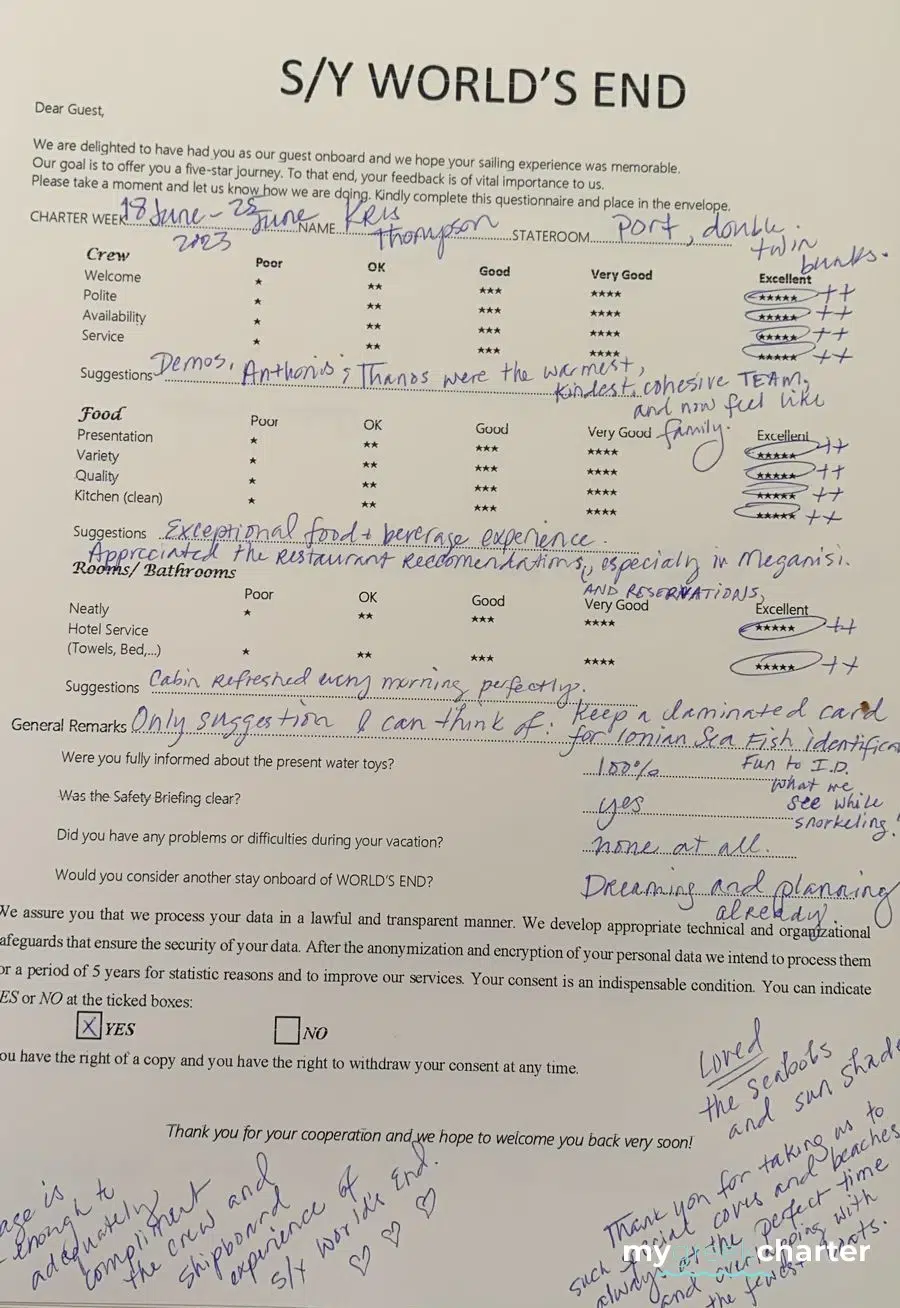 S/Y WORLD'S END
Dear Guest,
We are delighted to have had you as our guest onboard and we hope your sailing experience was memorable.
Our goal is to offer you a five-star journey. To that end, your feedback is of vital importance to us.
Please take a moment and let us know how we are doing. Kindly complete this questionnaire and place in the envelope.
CHARTER WEEK 18 June - 25 June 2023 NAME Kris Thompson STATEROOM Port, double twin bunks.
Crew Poor OK Good Very Good Excellent
Welcome ★ ★★ ★★★ ★★★★ ★★★★★ ++
Polite ★ ★★ ★★★ ★★★★ ★★★★★ ++
Availability ★ ★★ ★★★ ★★★★ ★★★★★ ++
Service ★ ★★ ★★★ ★★★★ ★★★★★ ++
Suggestions Demos, Anthonis & Thanos were the warmest,
kindest, cohesive TEAM,
and now feel like
family.
Food Poor OK Good Very Good Excellent
Presentation ★ ★★ ★★★ ★★★★ ★★★★★ ++
Variety ★ ★★ ★★★ ★★★★ ★★★★★ ++
Quality ★ ★★ ★★★ ★★★★ ★★★★★ ++
Kitchen (clean) ★ ★★ ★★★ ★★★★ ★★★★★ ++
Suggestions Exceptional food + beverage experience.
Appreciated the restaurant reccomendations, especially in Meganisi.
AND RESERVATIONS,
Rooms/ Bathrooms
Poor OK Good Very Good Excellent
Neatly ★ ★★ ★★★ ★★★★ ★★★★★ ++
Hotel Service
(Towels, Bed,...) ★ ★★ ★★★ ★★★★ ★★★★★ ++
Suggestions Cabin refreshed every morning perfectly.
General Remarks Only suggestion I can think of: Keep a laminated card
for Ionian Sea Fish identifica
Fun to I.D.
what we
see while
snorkeling!
Were you fully informed about the present water toys? 100%
Was the Safety Briefing clear? yes
Did you have any problems or difficulties during your vacation? none at all.
Would you consider another stay onboard of WORLD'S END? Dreaming and planning
already.
We assure you that we process your data in a lawful and transparent manner. We develop appropriate technical and organizational
afeguards that ensure the security of your data. After the anonymization and encryption of your personal data we intend to process them
or a period of 5 years for statistic reasons and to improve our services. Your consent is an indispensable condition. You can indicate
ES or NO at the ticked boxes:
X YES NO
ou have the right of a copy and you have the right to withdraw your consent at any time.
Loved
the seabobs
and sun shade
Thank you for your cooperation and we hope to welcome you back very soon!
Thank you for taking us to
such special coves and beaches
always at the perfect time
and overlapping with
the fewest boats.
age is
enough to
adequately
compliment
the crew and
shipboard
experience of
S/Y World's End.
♡ ♡ ♡
my greek charter